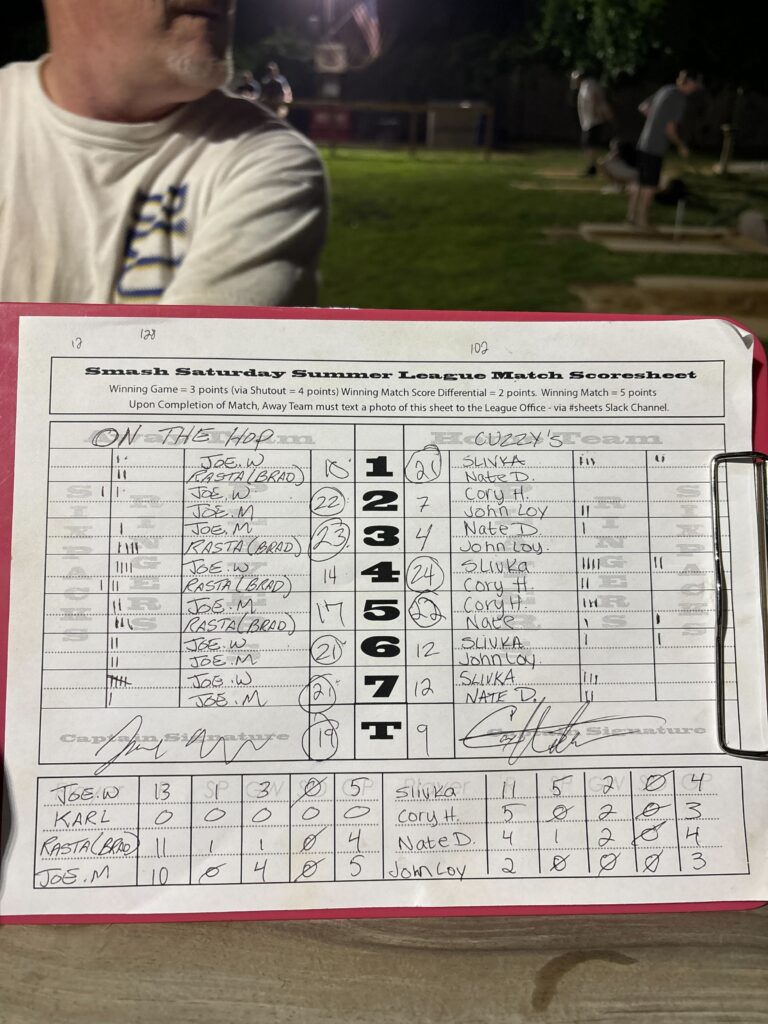 12 128 102
Smash Saturday Summer League Match Scoresheet
Winning Game = 3 points (via Shutout = 4 points) Winning Match Score Differential = 2 points. Winning Match = 5 points
Upon Completion of Match, Away Team must text a photo of this sheet to the League Office - via #sheets Slack Channel.
ON THE HOP CUZZY'S
Away Team Home Team
JOE.W 1 21 SLIVKA
RASTA(BRAD) Nate D.
JOE.W 22 2 7 Cory H.
JOE.M John Loy
JOE.M 23 3 4 Nate D.
RASTA(BRAD) John Loy.
JOE.W 14 4 24 Slivka
RASTA(BRAD) Cory H.
JOE.M 17 5 22 Cory H.
RASTA(BRAD) Nate
JOE.W 21 6 12 SLIVKA
JOE.M John Loy.
JOE.W 21 7 12 SLIVKA
JOE.M NATE D.
Captain Signature 19 T 9 Captain Signature
JOE.W 13 1 3 0 5 Slivka 11 5 2 0 4
KARL 0 0 0 0 0 Cory H. 5 0 2 0 3
RASTA(BRAD) 11 1 1 0 4 Nate D. 4 1 2 0 4
JOE.M 10 0 4 0 5 John Loy 2 0 0 0 3